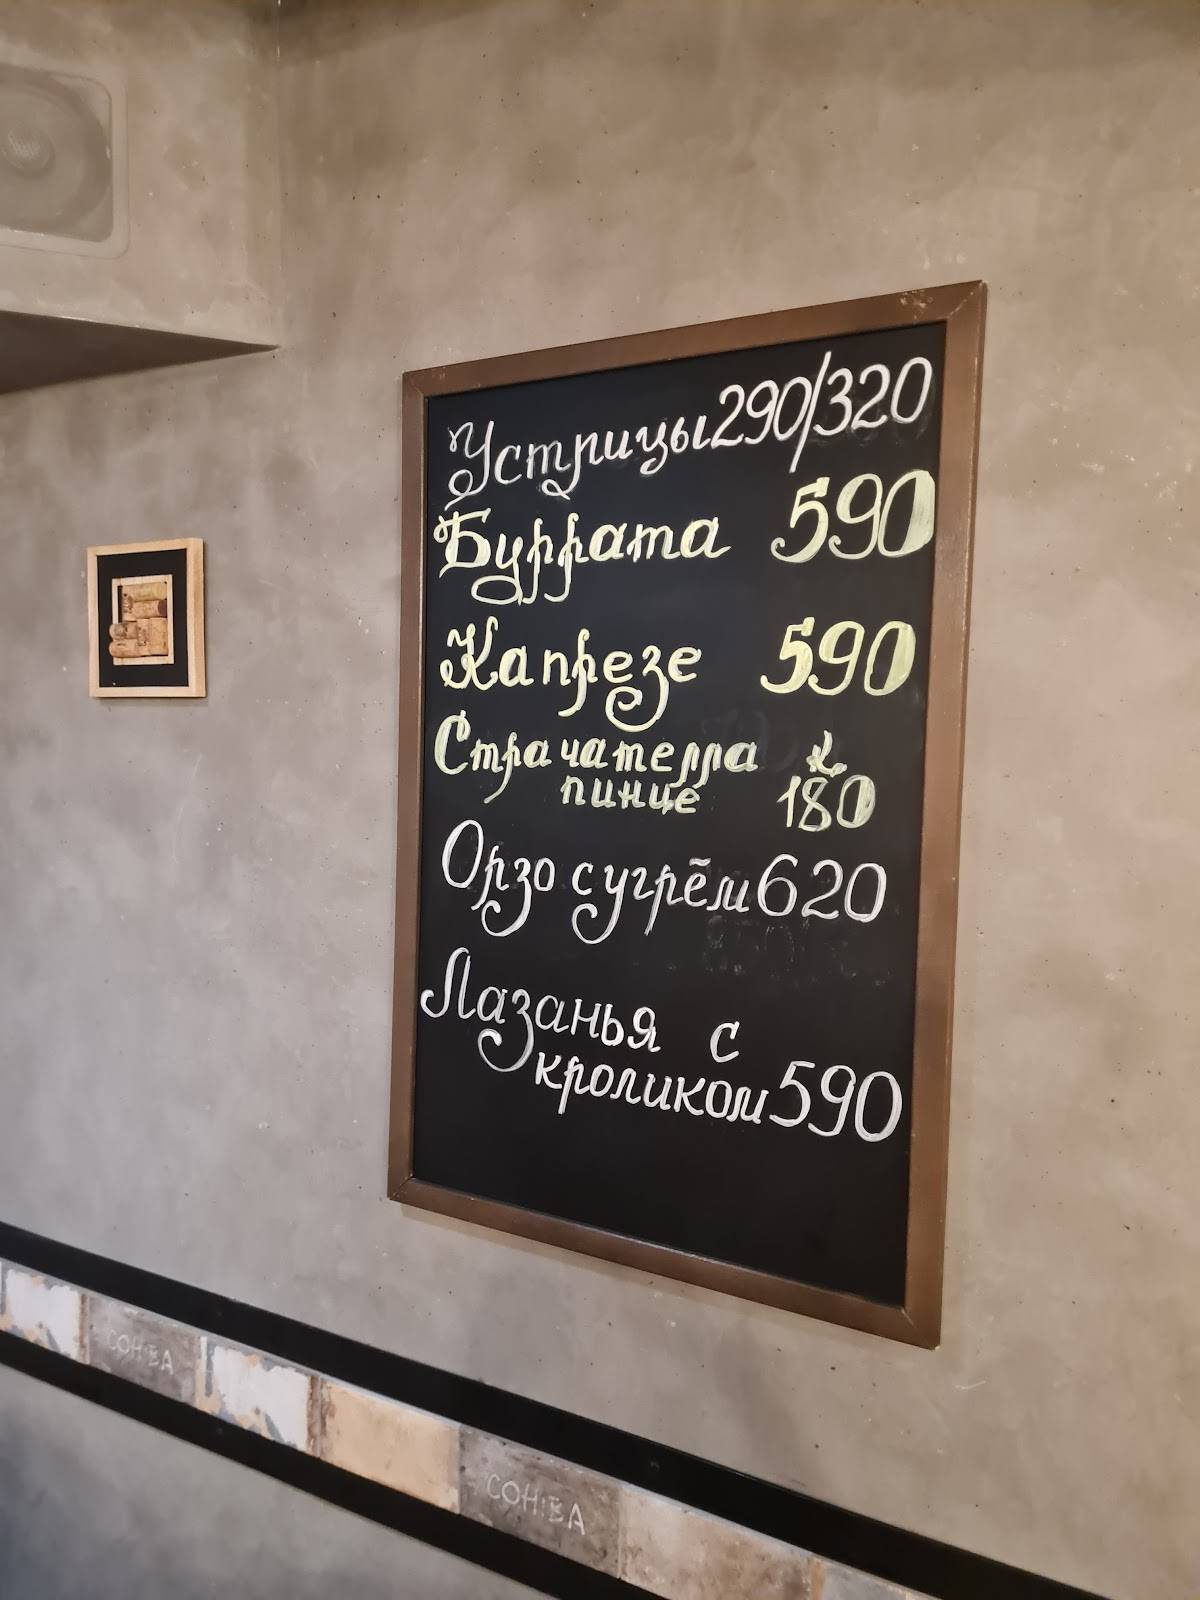 Устрицы 290/320
Буррата 590
Капрезе 590
Страчателла к
пинце 180
Орзо с угрём 620
Лазанья с
кроликом 590
COHIBA
COHIBA